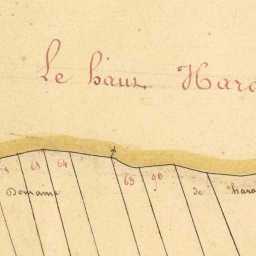 Le haut Hara
63 64
65 90
Domaine de hara